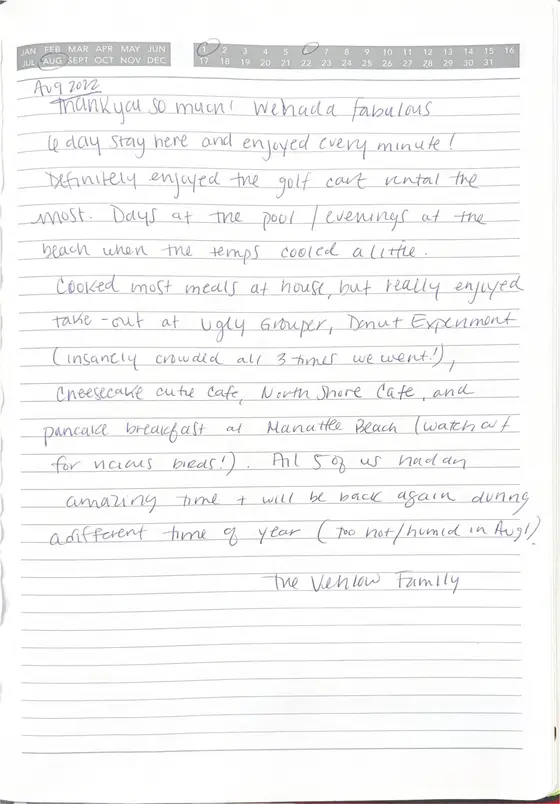 JAN FEB MAR APR MAY JUN
JUL AUG SEPT OCT NOV DEC
1 2 3 4 5 6 7 8 9 10 11 12 13 14 15 16
17 18 19 20 21 22 23 24 25 26 27 28 29 30 31
Aug 2022
Thank you so much! We had a fabulous
6 day stay here and enjoyed every minute!
Definitely enjoyed the golf cart rental the
most. Days at the pool / evenings at the
beach when the temps cooled a little.
Cooked most meals at house, but really enjoyed
take-out at Ugly Grouper, Donut Experiment
(insanely crowded all 3 times we went!),
Cheesecake cutie cafe, North Shore Cafe, and
pancake breakfast at Manattee Beach (watch out
for vicious birds!). All 5 of us had an
amazing time + will be back again during
a different time of year (too hot/humid in Aug!)
The Vehlow Family